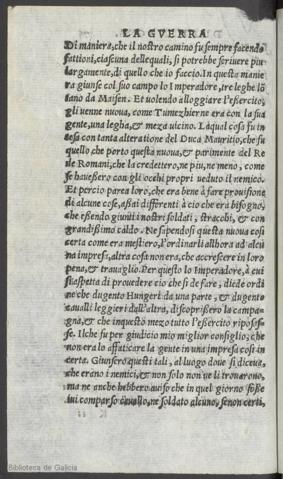 LA GVERRA
Di maniera, che il nostro camino fu sempre facendo
fattioni, ciascuna delle quali, si potrebbe scriuere piu
largamente, di quello che io faccio. In questa manie
ra giunse col suo campo lo Imperadore, tre leghe lō
tano da Maisen. Et uolendo alloggiare l'eßercito,
gli uenne nuoua, come Tumezhierne era con la sua
gente, una legha, & meza uicino. Laqual cosa fu in
tesa con tanta alteratione del Duca Mauritio, che fu
quello che porto questa nuoua, & parimente del Re
de Romani, che la credettero, ne piu, ne meno, come
se hauessero con gli occhi propri ueduto il nemico.
Et percio parea loro, che era bene à fare prouisione
di alcune cose, aßai differenti à cio che era bisogno,
che eßendo giunti i nostri soldati, stracchi, & con
grandißimo caldo. Ne sapendosi questa nuoua cosi
certa come era mestiero, l'ordinarli allhora ad alcu
na impresa, altra cosa non era, che accrescere in loro
pena, & trauaglio. Per questo lo Imperadore, à cui
si aspetta di prouedere cio che si de fare, diede ordi
ne che dugento Hungeri da una parte, & dugento
caualli leggieri dall'altra, discoprißero la campa-
gna, & che in questo mezo tutto l'eßercito riposas-
se. Il che fu per giudicio mio miglior consiglio, che
non era lo affaticare la gente in una impresa cosi in
certa. Giunsero questi tali, al luogo doue si diceua,
che erano i nemici, & non solo non ue li trouarono,
ma ne anche hebbero auiso che in quel giorno foße
iui comparso cauallo, ne soldato alcuno, se non certi,
Biblioteca de Galicia